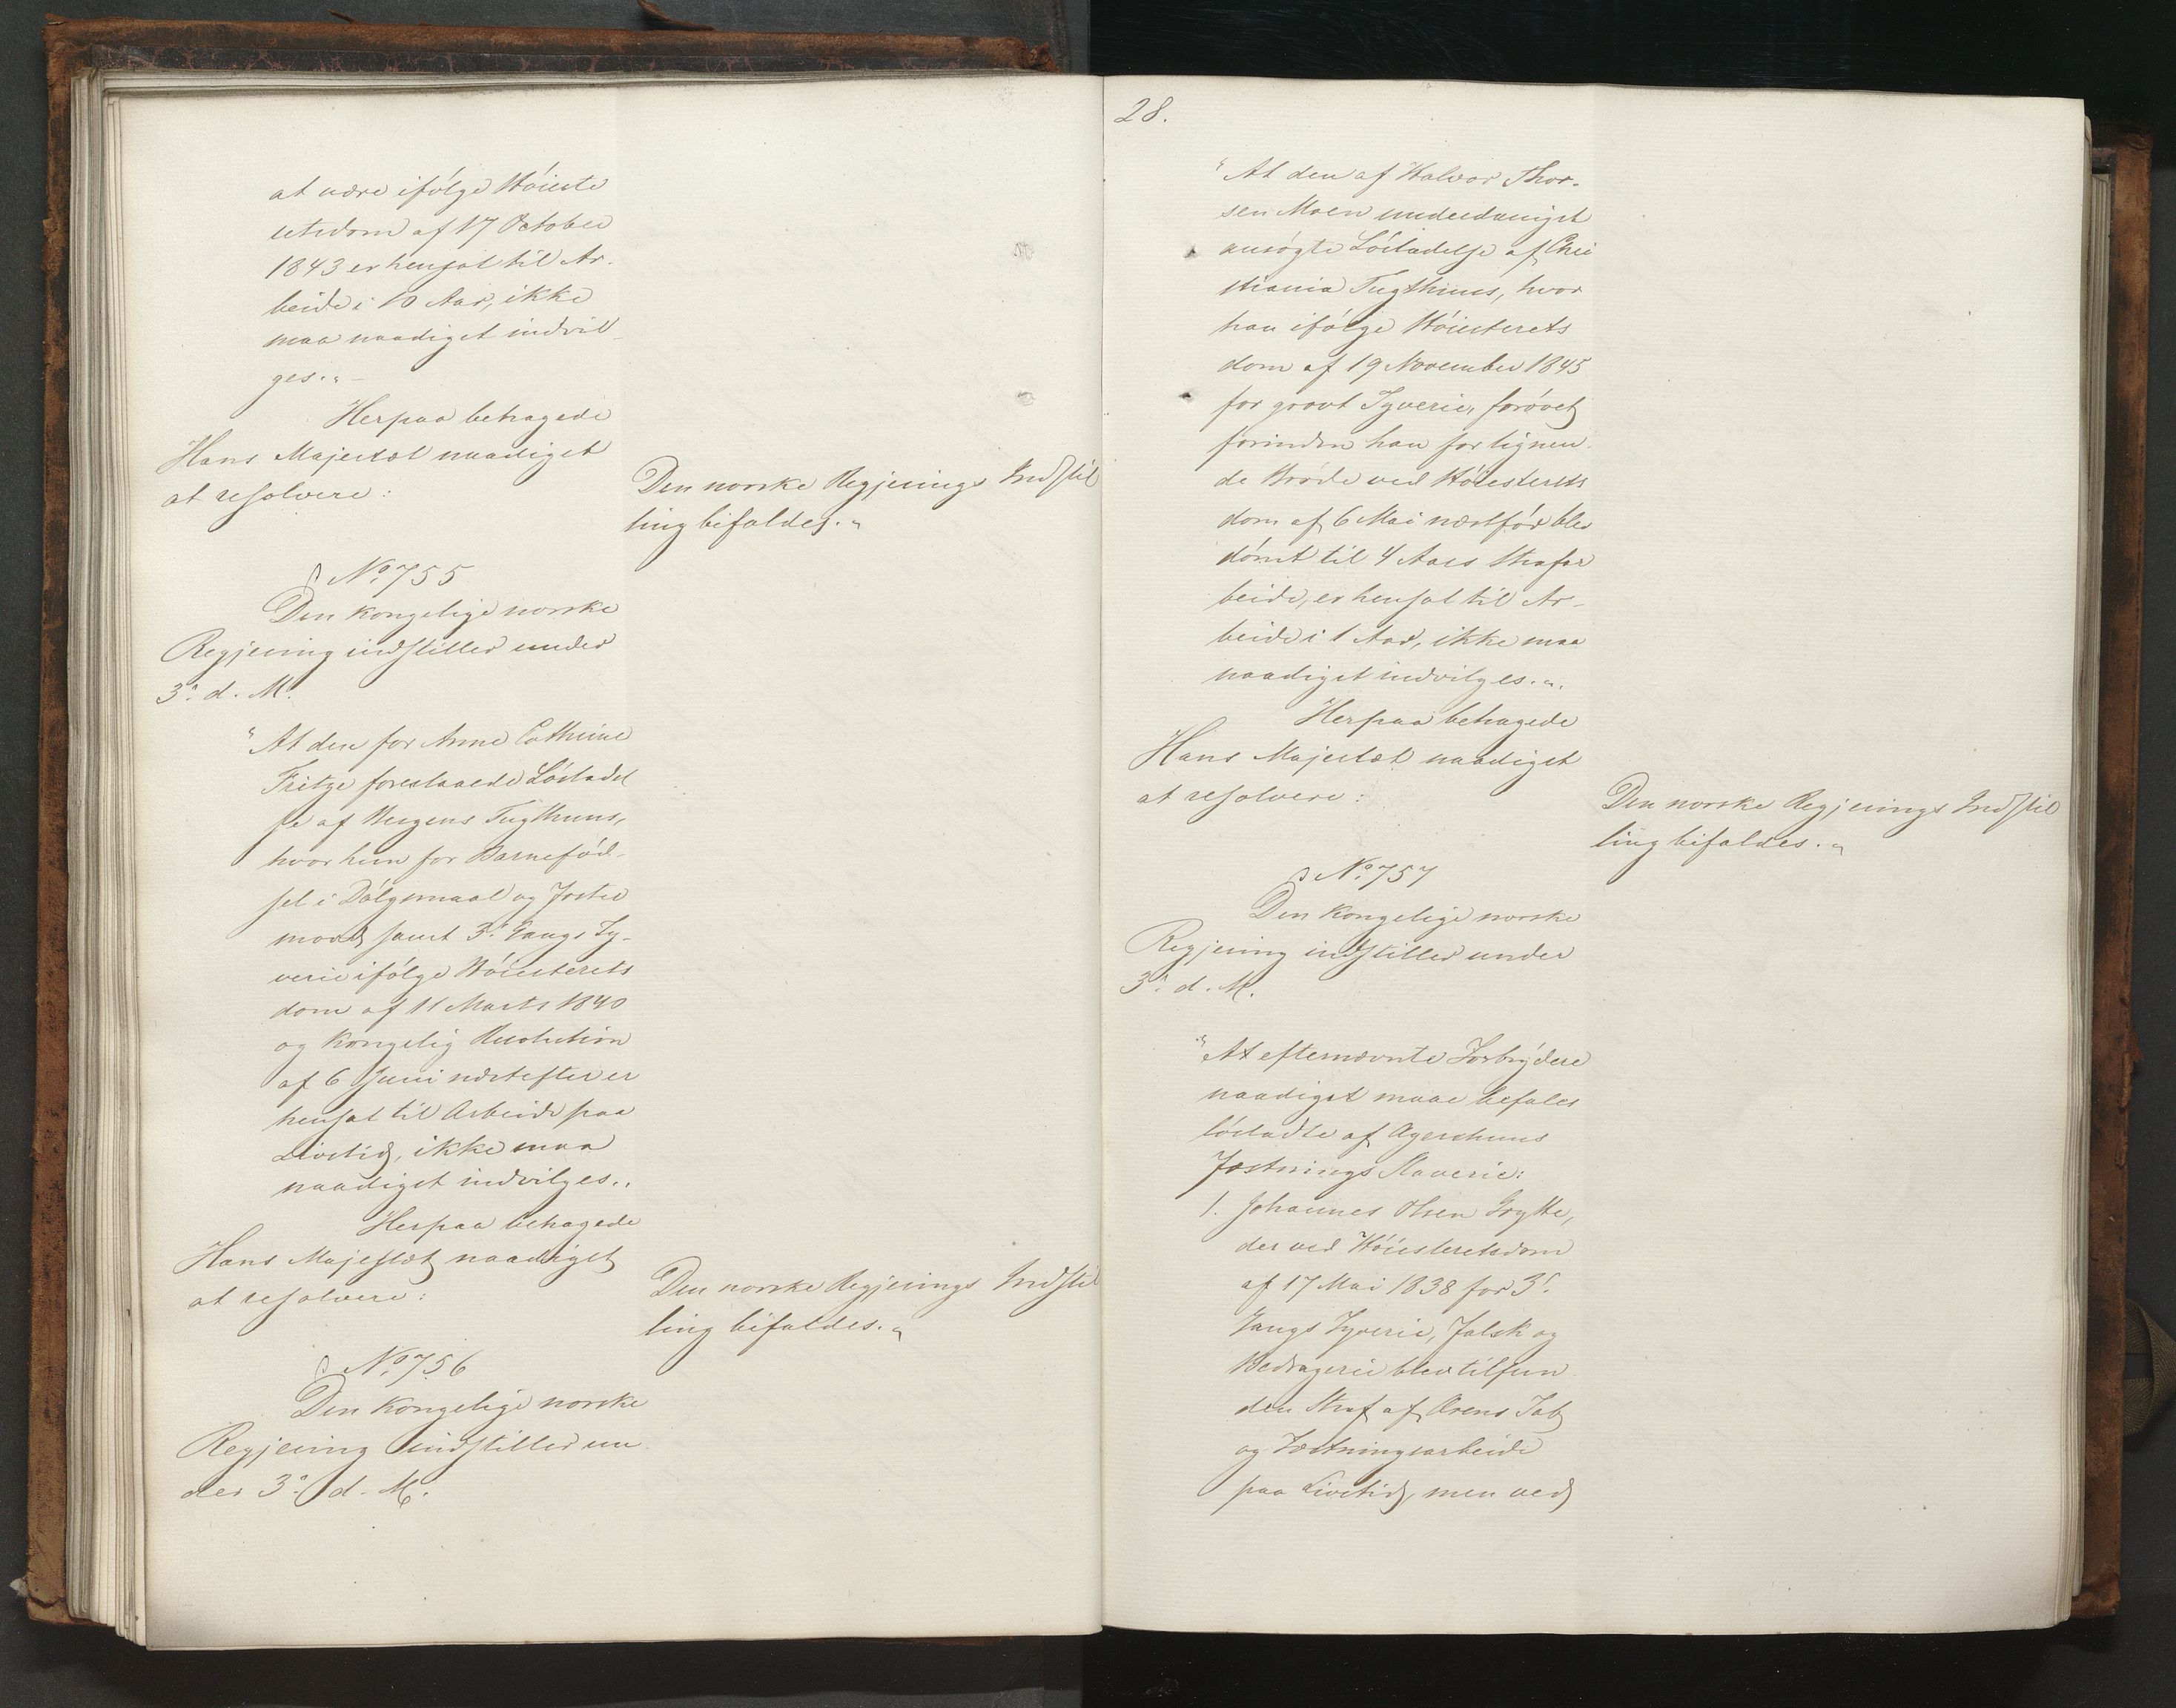 at være ifölge Höieste
retsdom af 17 October
1843 er hensat til Ar-
beide i 10 Aar, ikke
maa naadigst indvil
ges."-
Herpaa behagede
Hans Majestæt naadigst
at resolvere:
Den norske Regjerings Indstil
ling bifaldes."
No 755
Den kongelige norske
Regjering indstiller under
3e d. M.
"At den for Anne Cathrine
Fritze foreslaaede Lösladel
se af Bergens Tugthuus,
hvor hun for Barneföd-
sel i Dölgsmaal og Foster
mord samt 3e Gangs Ty-
verie ifölge Höiesterets
dom af 11 Marts 1840
og Kongelig Resolution
af 6 Juni næstefter er
hensat til Arbeide paa
Livstid, ikke maa
naadigst indvilges."
Herpaa behagede
Hans Majestæt naadigst
at resolvere:
Den norske Regjerings Indstil
ling bifaldes."
No 756
Den Kongelige norske
Regjering indstiller un
der 3e d. M.
28.
"At den af Halvor Thor-
sen Moen underdanigst
ansögte Lösladelse af Chri
stiania Tugthuus, hvor
han ifölge Höiesterets
dom af 19 November 1845
for grovt Tyverie, forövet
forinden han for lignen
de Bröde ved Höiesterets
dom af 6 Mai næstför blev
dömt til 4 Aars Strafar
beide, er hensat til Ar-
beide i 1 Aar, ikke maa
naadigst indvilges."
Herpaa behagede
Hans Majestæt naadigst
at resolvere:
Den norske Regjerings Indstil
ling bifaldes."
No 757
Den Kongelige norske
Regjering indstiller under
3e d. M.
"At efternævnte Forbrydere
naadigst maae befales
lösladte af Agershuus
Fæstnings Slaverie:
1. Johannes Olsen Grytte,
der ved Höiesteretsdom
af 17 Mai 1838 for 3e
Gangs Tyverie, Falsk og
Bedragerie blev tilfun
den Straf af Ærens Tab
og Fæstningsarbeide
paa Livstid, men ved